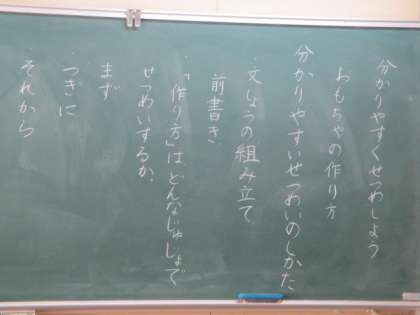 分かりやすくせつめいしよう
おもちゃの作り方
分かりやすいせつめいのしかた
・文しょうの組み立て
前書き
・「作り方」は どんなじゅんじょで
せつめいするか。
・まず
・つぎに
・それから